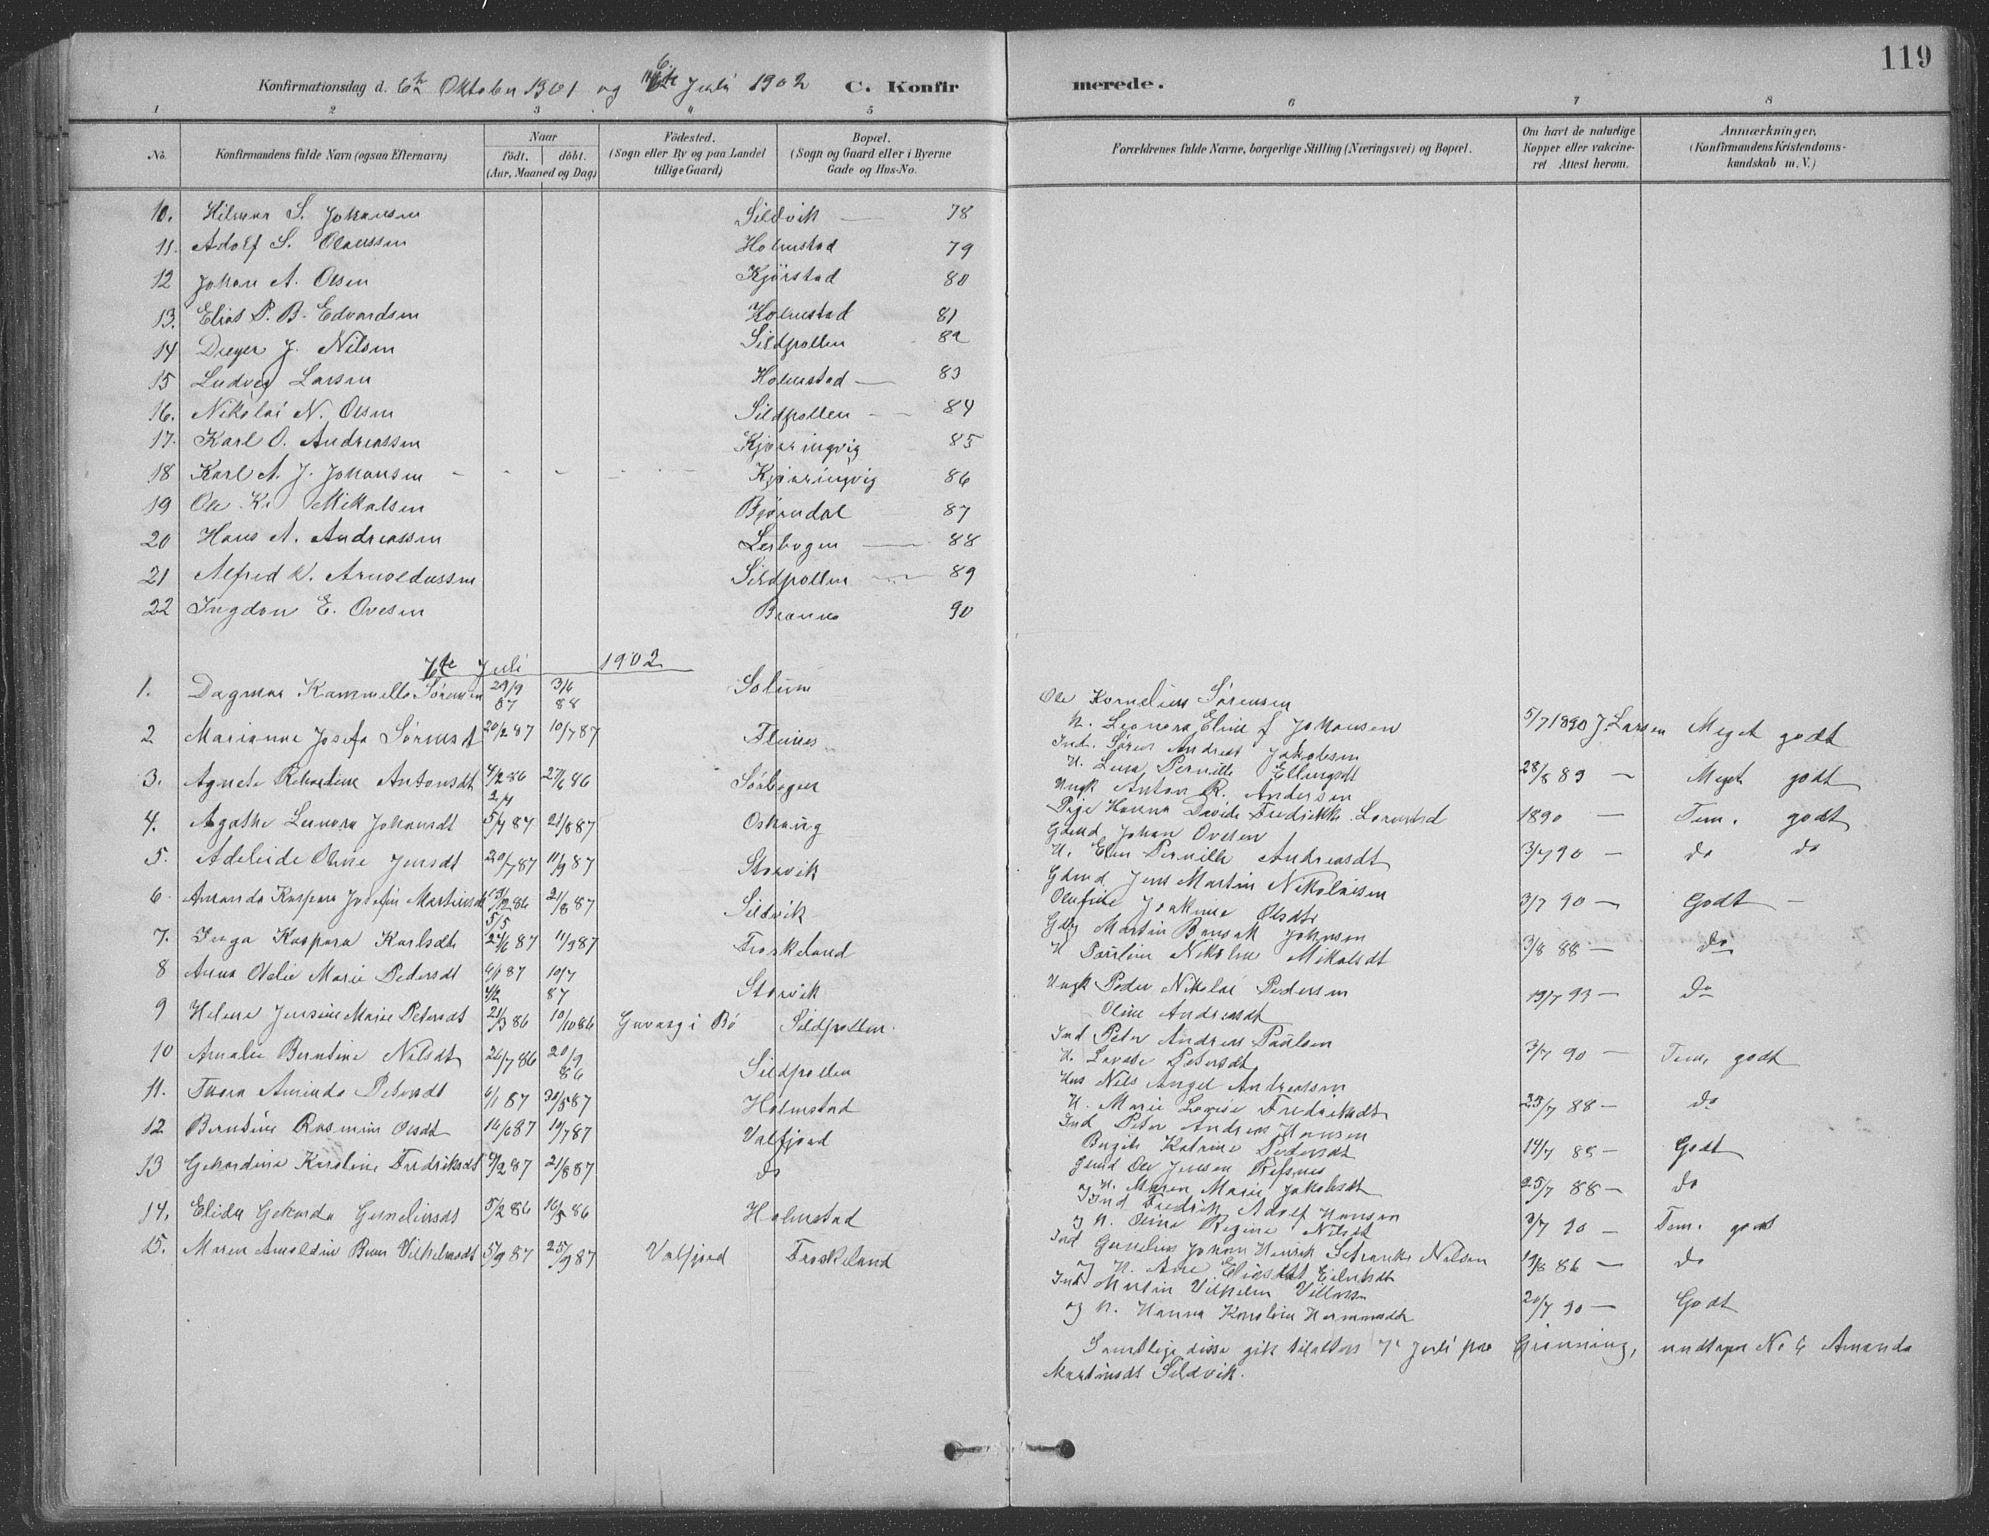 119
Konfirmationsdag d. 6te Oktober 1901 og 6te Juli 1902 C. Konfirmerede.
1 2 3 4 5 6 7 8
No. Konfirmandens fulde Navn (ogsaa Efternavn) Naar født. døbt. (Aar, Maaned og Dag) Fødested. (Sogn eller By og paa Landet tillige Gaard) Bopæl. (Sogn og Gaard eller i Byerne Gade og Hus-No. Forældrenes fulde Navne, borgerlige Stilling (Næringsvei) og Bopæl. Om havt de naturlige Kopper eller vakcineret Attest herom. Anmærkninger. (Konfirmandens Kristendomskundskab m. V.)
10. Hilmar S. Johansen Sildvik — 78
11. Adolf S. Olaussen Holmstad 79
12 Johan A. Olsen Kjørstad 80
13. Elias P. B. Edvardsen Holmstad 81
14 J. Nilsen Sildpollen 82
15 Ludvig Larsen Holmstad — 83
16. Nikolai N. Olsen Sildpollen — 84
17. Karl O. Andreassen Kjøringvig 85
18 Karl A. J. Johansen Kjøringvig 86
19 Ole Kr. Mikalsen Bjørndal 87
20 Hans A. Andreassen Lerbogen — 88
21 Alfred K. Arnoldussen Sildpollen — 89
22 Ingdon E. Ovesen 90
7de Juli 1902
1. Dagmar Kammilla Sørensen 29/9 87 3/6 88 Solum Ole Kornelius Sørensen
H. Leonora Eline f Johansen 5/7 1890 J. Larsen Meget godt
2 Marianne Josefa Sørensdt 20/2 87 10/7 87 Flines Ind. Søren Andreas Jakobsen
H. Lusa Pernille Ellingsdt 28/8 89 — Meget godt
3. Agnete Rikardine Antonsdt 4/2 86 27/6 86 Sørbogen Ungk Anton R. Andersen
Pige Hanna Davide Fredrikke 1890 — Tem. godt
4. Agathe Leonora Johansdt 5/7 87 21/8 87 Oshaug Gdmd Johan Ovesen
H. Elen Pernille Andreasdt 3/7 90 — do do
5. Adeleide Oline Jensdt 20/7 87 11/9 87 Storvik Gdmd Jens Martin Nikolaisen
Olufine Joakime Olsdt 3/7 90 — Godt —
6. Amanda Kaspara Josefin Martinsdt 12 86 21/8 87 Sildvik Martin Johnsen
H Pauline Nikoline Mikalsdt 3/8 88 — do
7. Inga Kaspara Karlsdt 5/5 87 11/9 87 Froskeland
8 Anna Ovelie Marie Pedersdt 6/1 87 10/7 87 Storvik Ungk Peder Nikolai Pedersen
Oline Andreasdt 19/7 93 — do
9 Helene Jensine Marie Petersdt 21/3 86 10/10 86 i Bø Sildpollen. Ind Peter Andreas Paulsen
H. Lovise Petersdt 3/7 90 — Tem. godt
10 Amalie Berntine Nilsdt 26/7 86 20/9 86 Sildpollen Hus Nils Angel Andreassen
H. Marie Lovise Fredriksdt 25/7 88 — do
11. Thora Aminda Petersdt 6/1 87 30/5 87 Holmstad Ind Peter Andreas Hansen
Birgite Katrine Pedersdt 14/7 85 — Godt
12 Berntine Rasmine Olsdt 16/6 87 10/7 87 Valfjord Gmd Ole Jensen Refsnes
og H. Maren Marie Jakobsdt 25/7 88 — do
13 Gekardine Karoline Fredriksdt 4/2 87 21/8 87 do Ind Fredrik Adolf Hansen
og H. Oline Regine Nilsdt 3/7 90 — Tem. godt
14. Elida Gekarda Gorneliusdt 5/2 86 16/5 86 Holmstad Ind Gornelius Johan Henrik Nilsen
og H. Ane 19/8 86 — do
15. Maren Arnoldin Vilhelmsdt 5/9 87 25/9 87 Valfjord Froskeland Ind Martin Vilhelm
og H. Hanna Karoline 20/7 90 — Godt
Samtlige disse gik tilalters 7de Juli paa Grønning, undtagen No 6 Amanda
Martinsdt Sildvik.